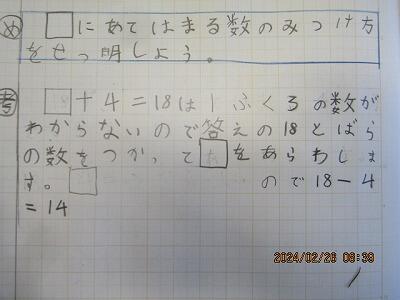 め □にあてはまる数のみつけ方
をせつ明しよう。
考 □+4=18は1ふくろの数が
わからないので答えの18とばら
の数をつかって□をあらわしま
す。□ ので18-4
=14
2024/02/26 08:39